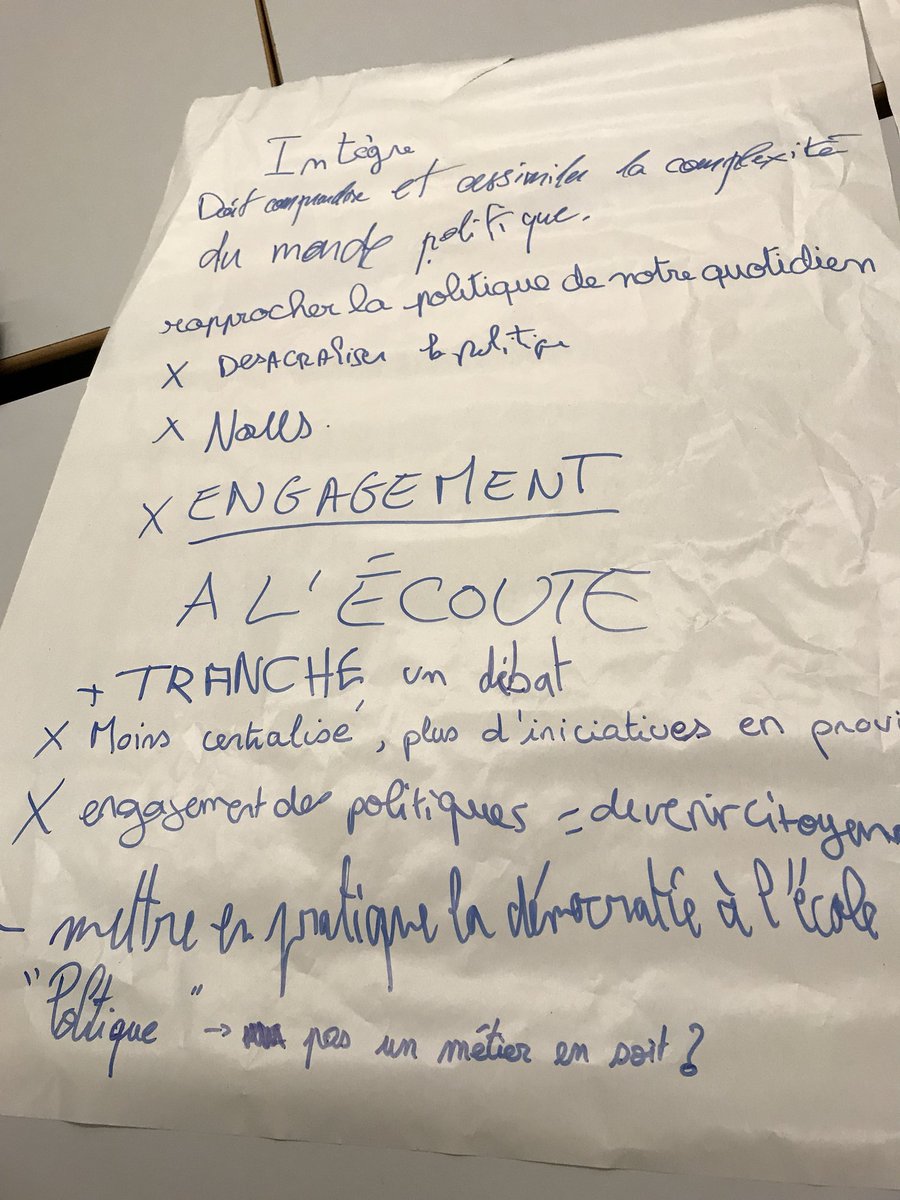 Intègre
Doit comprendre et assimiler la complexité
du monde politique.
rapprocher la politique de notre quotidien
X DESACRALISER la politique
X
X ENGAGEMENT
A L'ÉCOUTE
+ TRANCHÉ un débat
X Moins centralisé, plus d'iniciatives en provi
X engagement des politiques = devenir citoyens
- mettre en pratique la démocratie à l'école
"Politique" → pas un métier en soit ?